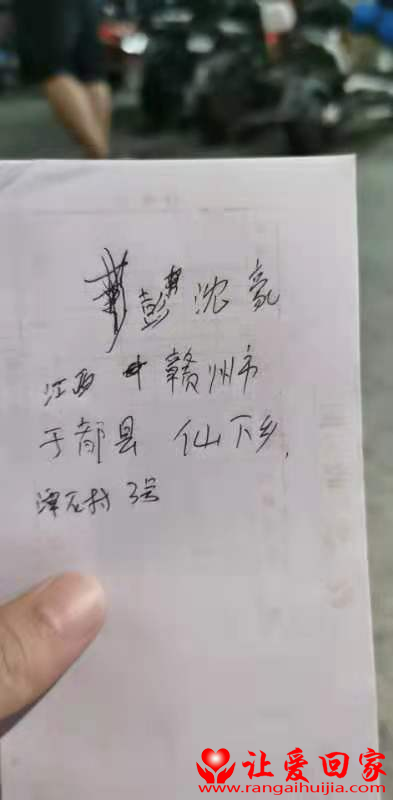 彭沈豪
江西 赣州市
于都县 仙下乡,
潭石村 3号
让爱回家
www.rangaihuijia.com